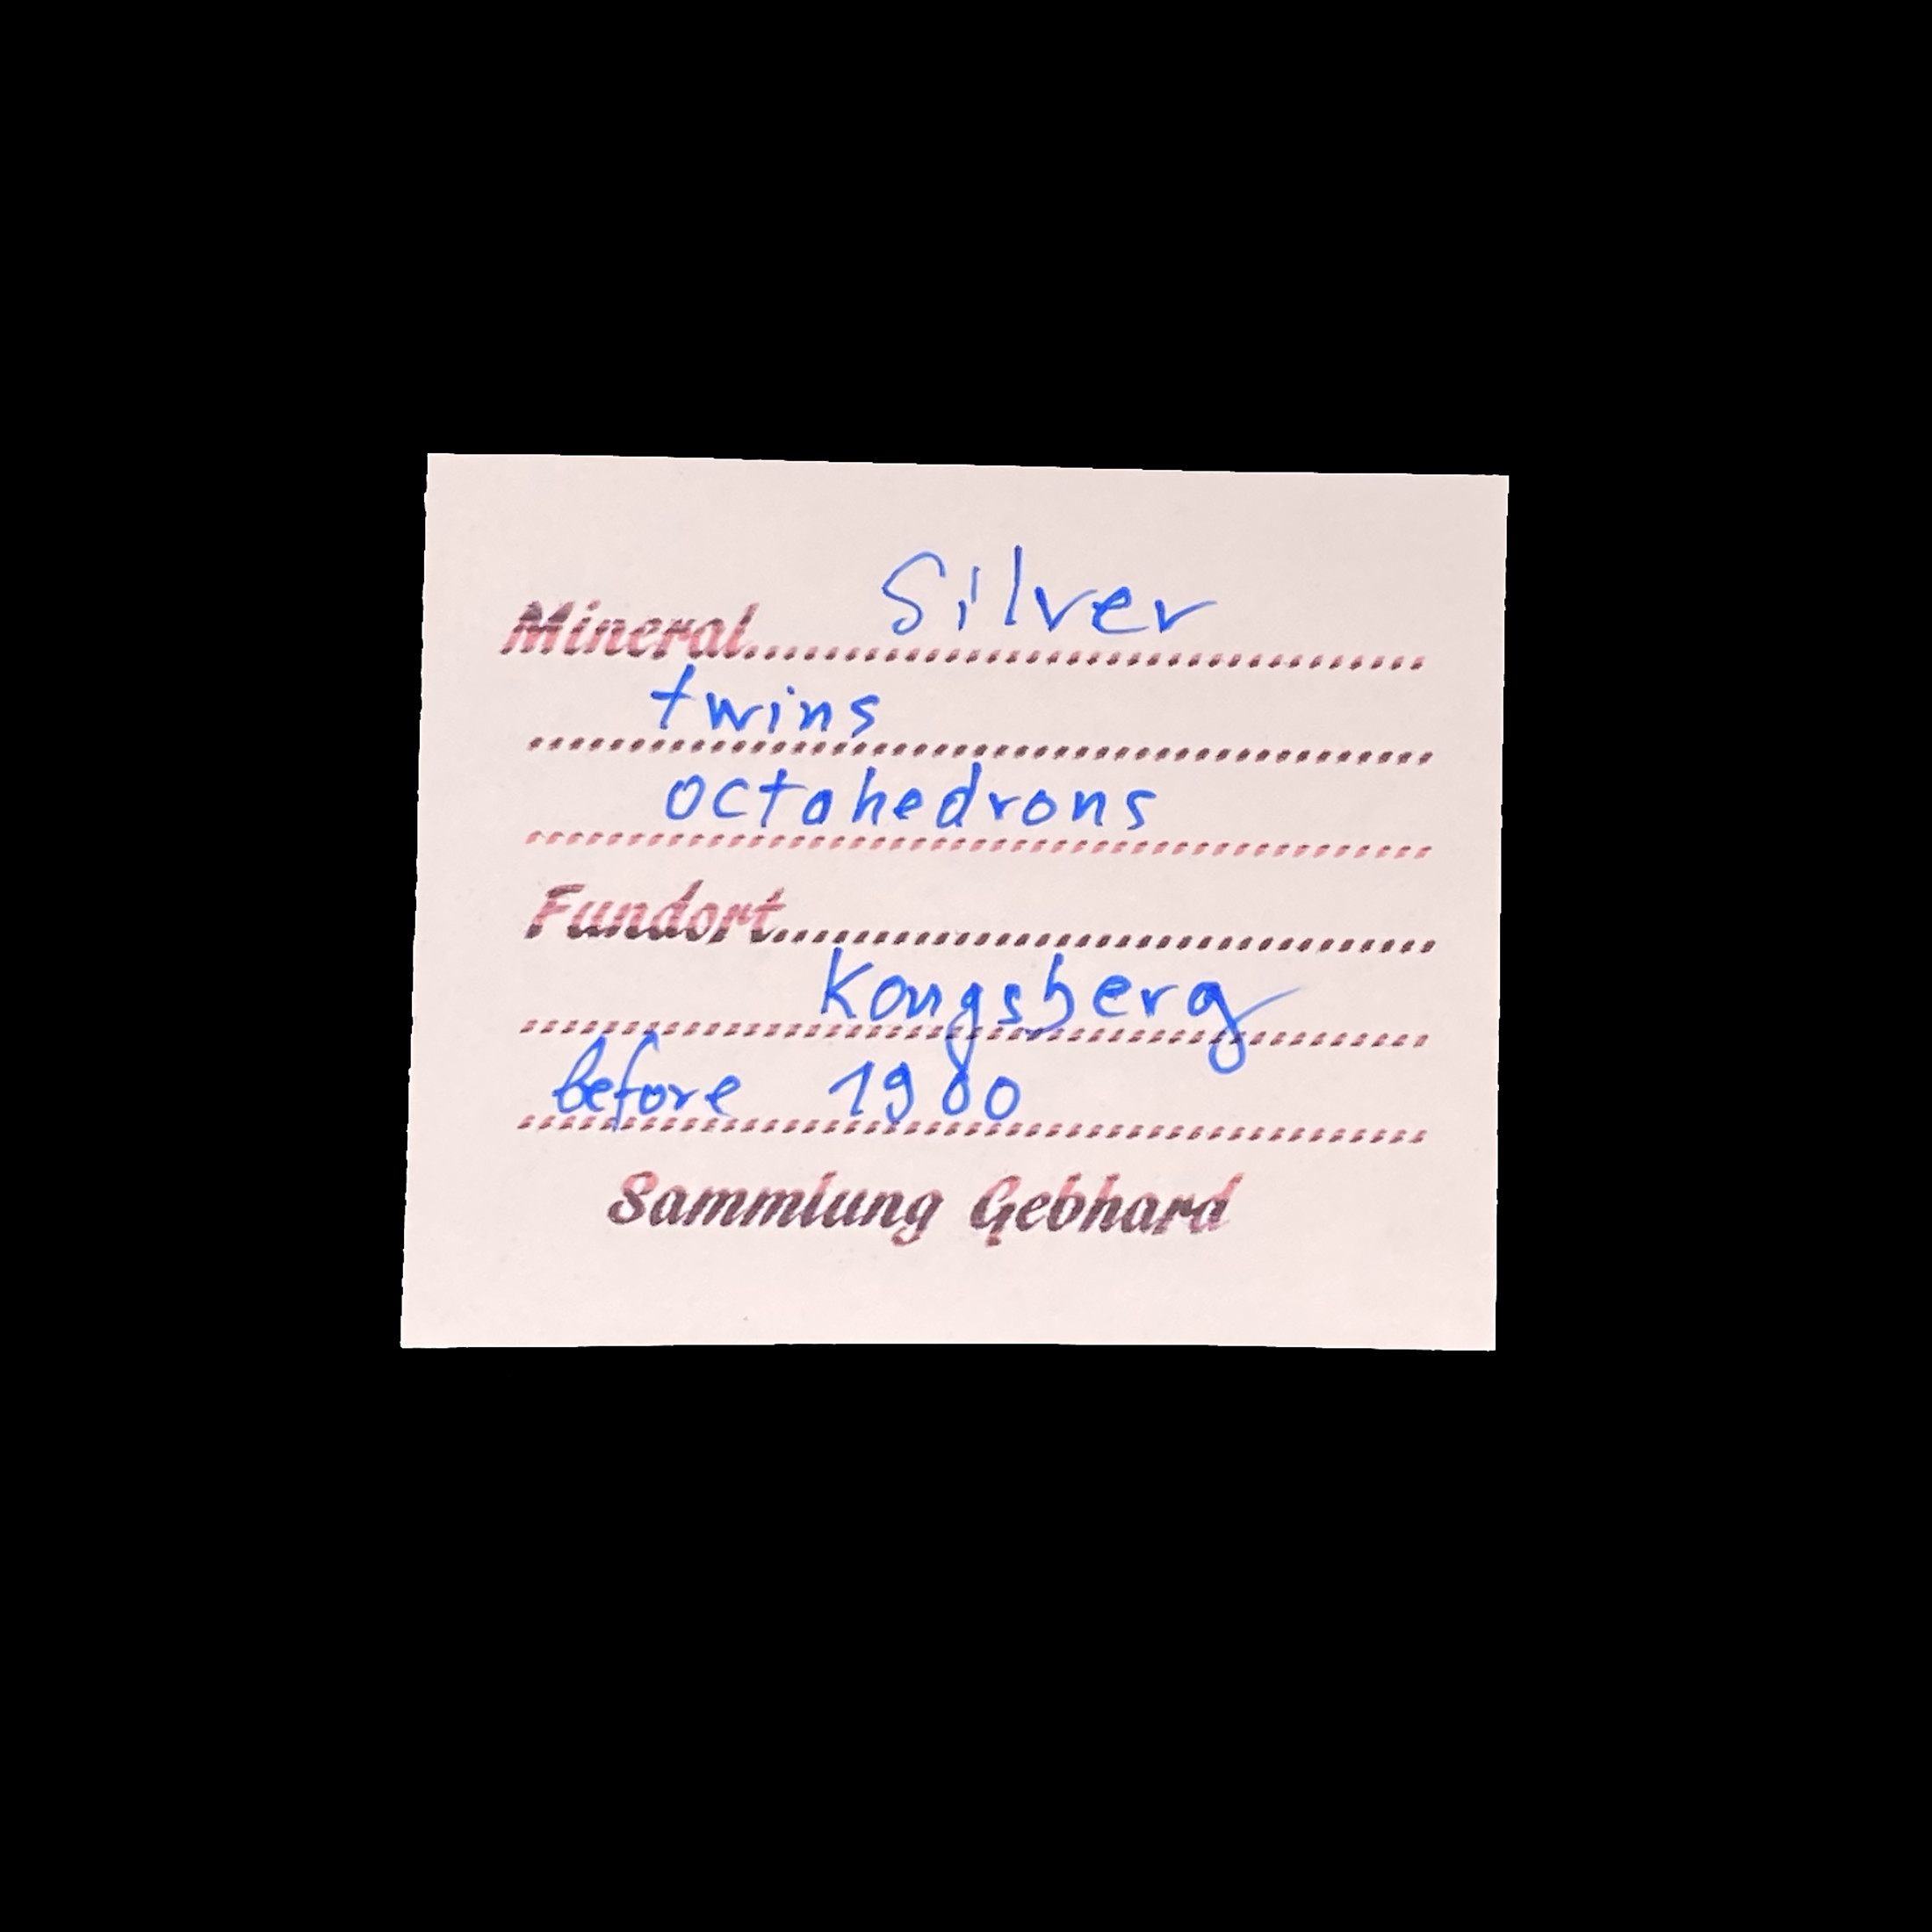 Mineral.......... Silver
twins
octahedrons
Fundort..........
Kongsberg
before 1900
Sammlung Gebhard